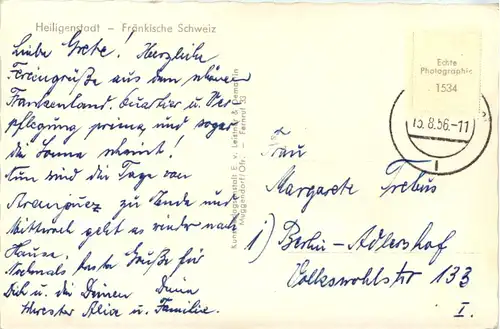 Heiligenstadt – Fränkische Schweiz
Liebe Grete! Herzliche
Feriengrüße aus dem schönen
Frankenland. Quartier u. Ver
pflegung prima, und sogar
die Sonne scheint!
Nun sind die Tage von
Aranjuez zu Ende und
Mittwoch geht es wieder nach
Hause.
Nochmals beste Grüße für
Dich u. die Deinen Deine
Schwester u. Familie.
Kunstverlagsanstalt E. v. Leistner & Demartin
Muggendorf/Ofr. – Fernruf 33
Echte
Photographie
1534
15.8.56.-11
Frau
Margarete Trebus
1) Berlin-Adlershof
Volkswohlstr 133
I.